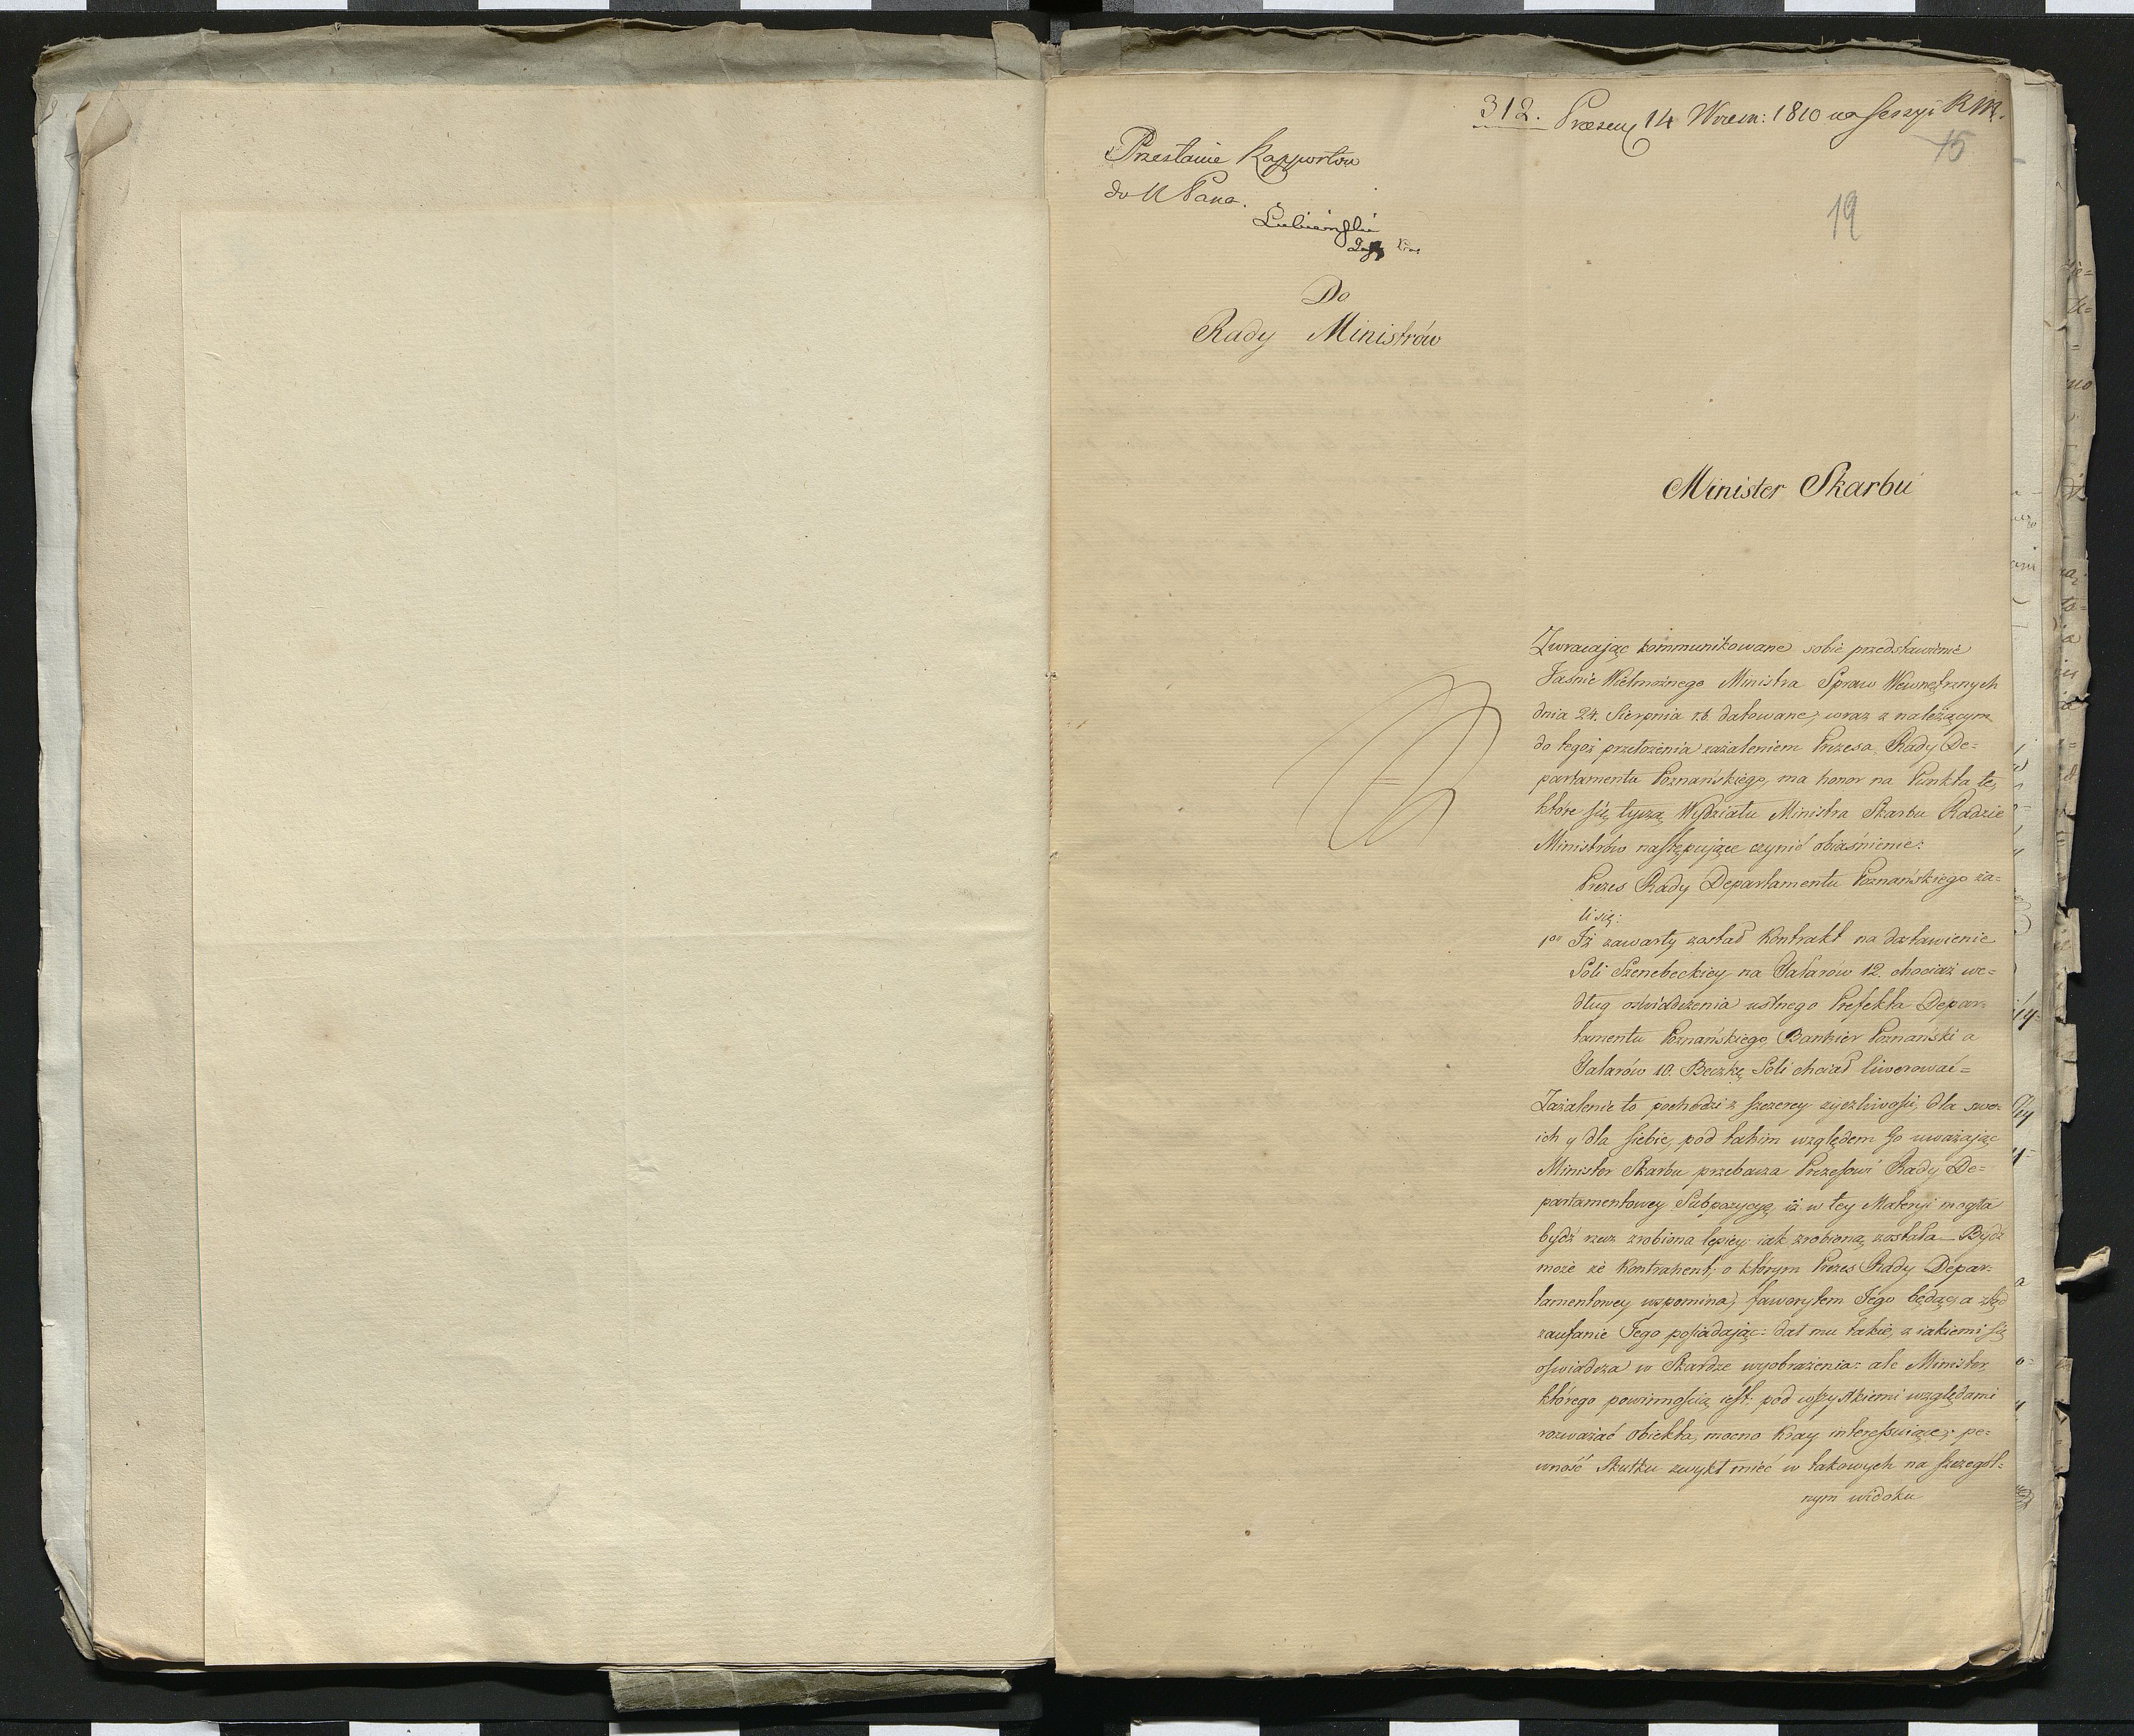 312. Praesent 14 Wrzesn: 1810 na Sessyi RM.
15
19
Przesłanie Rapportow
do N Pana.
Łubieński
Do
Rady Ministrów
Minister Skarbu
Zwracając kommunikowane sobie przedstawienie
Jaśnie Wielmożnego Ministra Spraw Wewnętrznych
dnia 24. Sierpnia r.b. datowane, wraz z należącym
do tegoż przełożenia zażaleniem Prezesa Rady De=
partamentu Poznańskiego, ma honor na Punkta te,
które się tyczą Wydziału Ministra Skarbu Radzie
Ministrów następujące czynić obiaśnienie:
Prezes Rady Departamentu Poznańskiego ża=
li się:
1o Iż zawarty został Kontrakt na dostawienie
Soli Szenebeckiey na Talarów 12. chociaż we=
dług oświadczenia ustnego Prefekta Depar=
tamentu Poznańskiego Bankier Poznański a
Talarów 10. Beczkę Soli chciał liwerować=
Zażalenie to pochodzi z szczerey życzliwości dla swo=
ich y dla siebie, pod takim względem Go uważając
Minister Skarbu przebacza Prezesowi Rady De=
partamentowey Suppozycyą, iż w tey Materyi mogła
bydź rzecz zrobiona lepiey iak zrobioną została – Bydź
może że Kontrahent, o którym Prezes Rady Depar=
tamentowey wspomina, faworytem Jego będąc, a ztąd
zaufanie Jego posiadając: dał mu takie, z iakiemi się
oświadcza w Skardze wyobrażenia: ale Minister
którego powinnością iest pod wszystkiemi względami
rozważać Obiekta, mocno Kray interessuiące; pe=
wność Skutku zwykł mieć w takowych na szczegól=
nym widoku